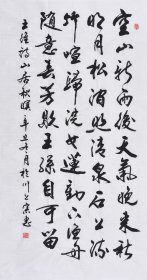 空山新雨後天氣晚来秋
明月松间照清泉石上流
竹喧歸浣女蓮動下渔舟
随意春芳歇王孫自可留
王維詩山居秋暝辛丑冬月於川上